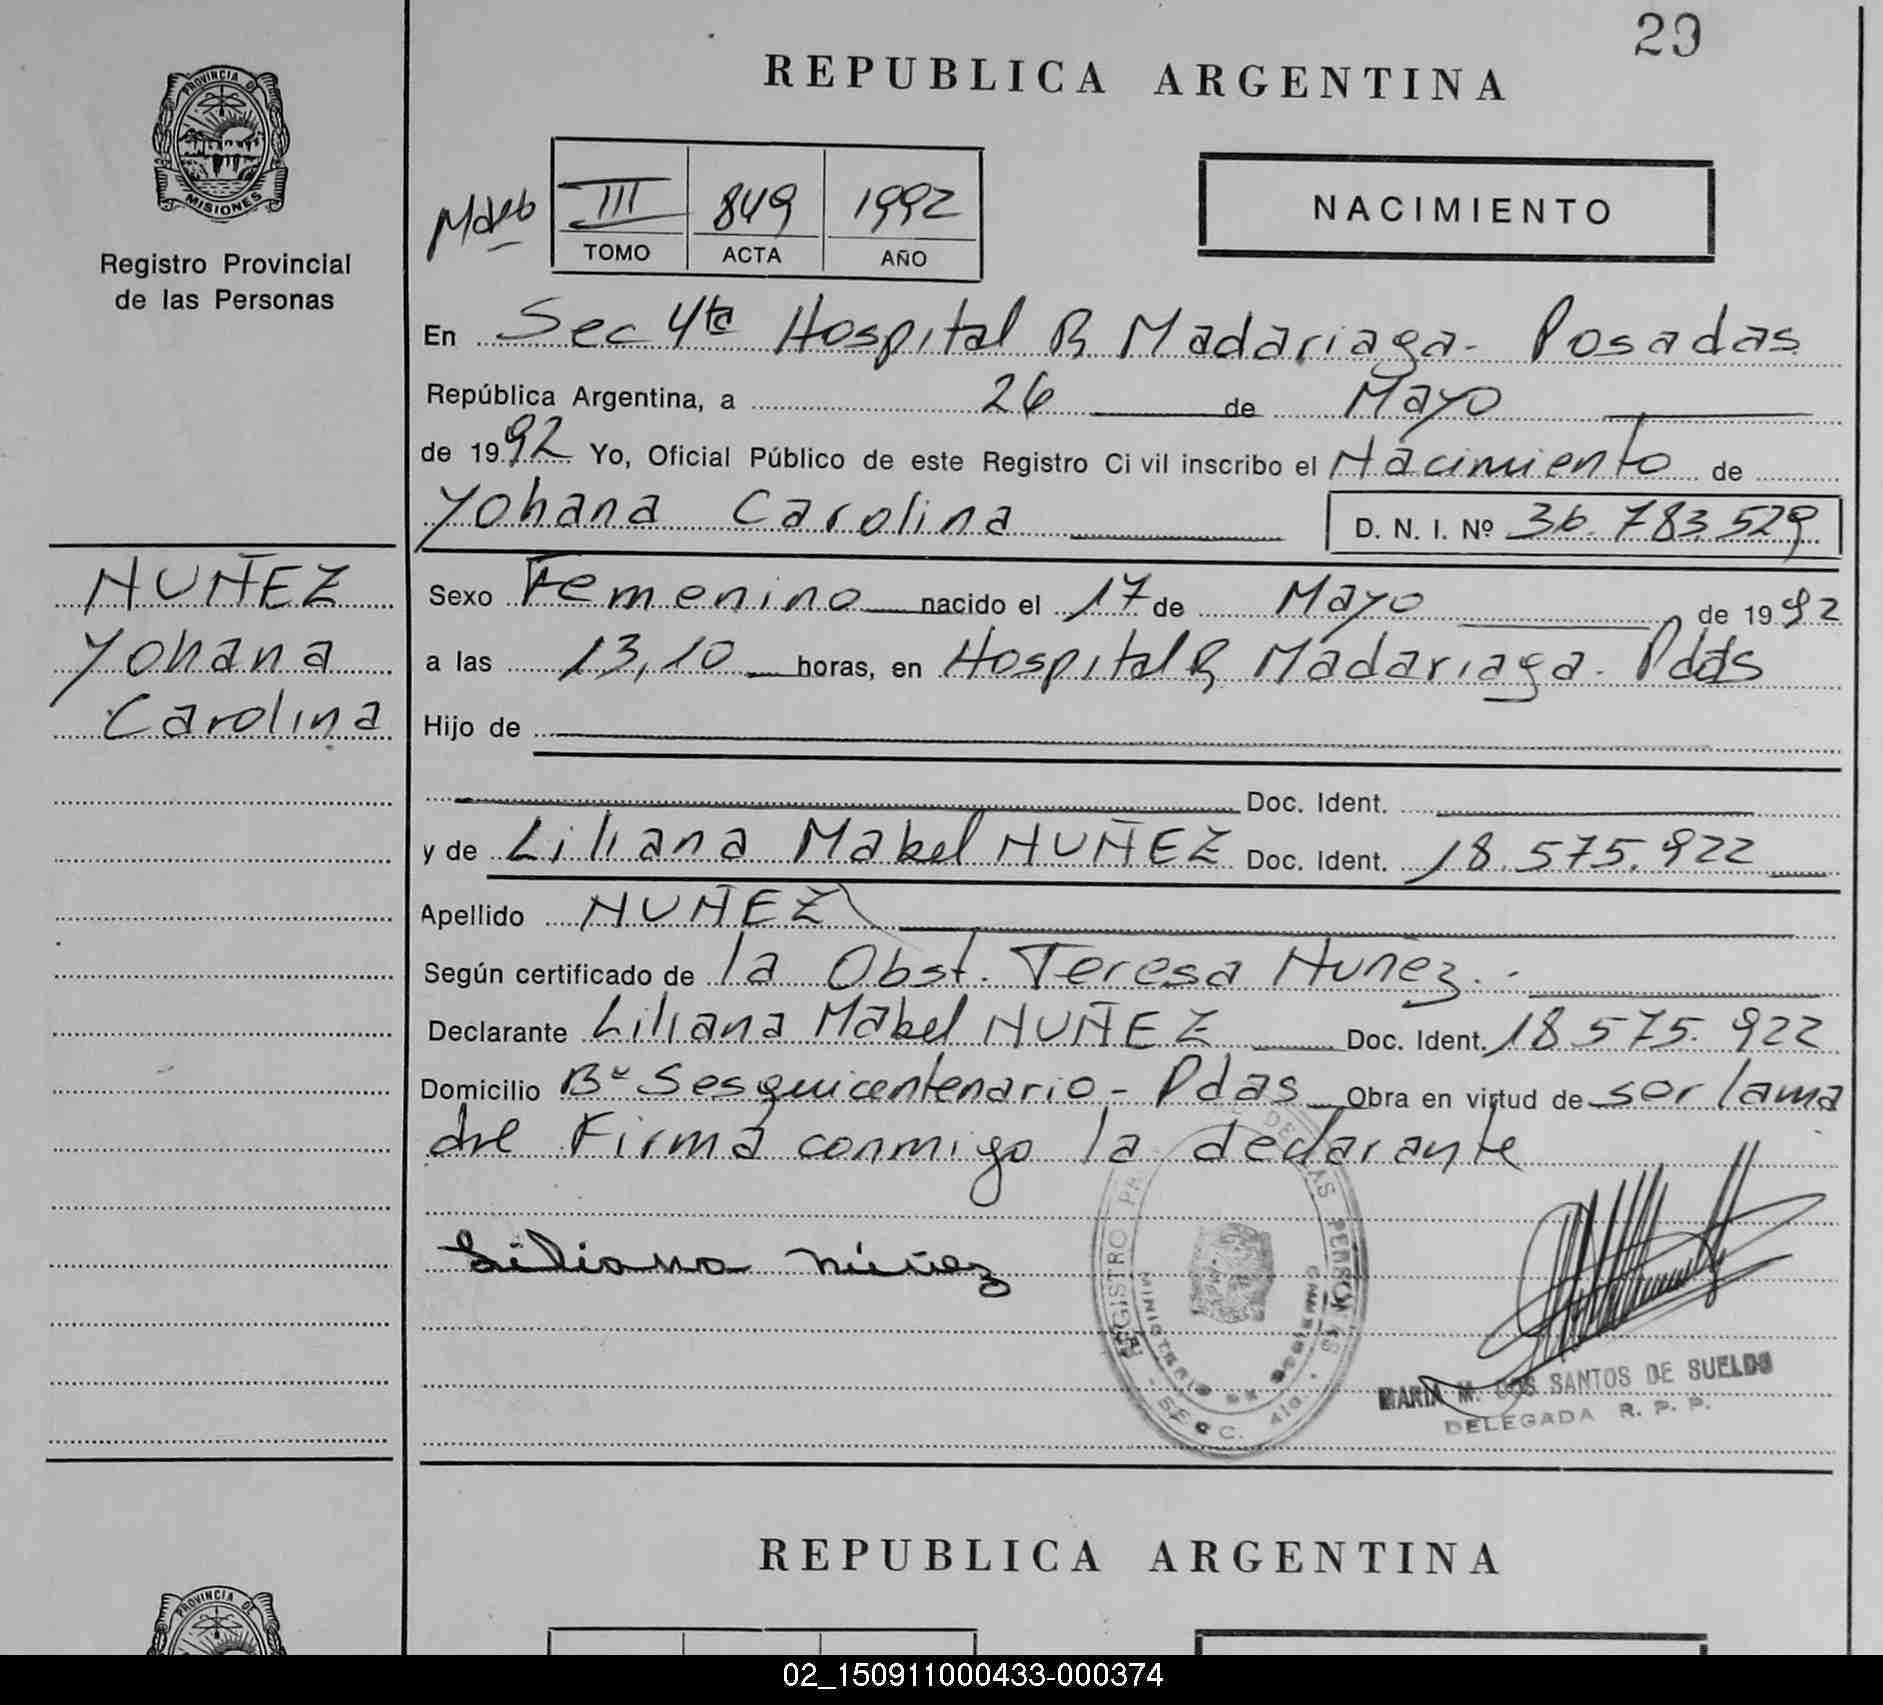 29
REPUBLICA ARGENTINA
PROVINCIA DE
MISIONES
Registro Provincial
de las Personas
III 849 1992
TOMO ACTA AÑO
NACIMIENTO
En Sec 4ta Hospital R Madariaga - Posadas
República Argentina, a 26 de Mayo
de 1992 Yo, Oficial Público de este Registro Ci vil inscribo el Nacimiento de
Yohana Carolina D. N. I. Nº 36.783.529
NUÑEZ
Yohana
Carolina
Sexo Femenino nacido el 17 de Mayo de 1992
a las 13,10 horas, en Hospital R Madariaga - Pdas
Hijo de
Doc. Ident.
y de Liliana Mabel NUÑEZ Doc. Ident. 18.575.922
Apellido NUÑEZ
Según certificado de la Obst. Teresa Nuñez.
Declarante Liliana Mabel NUÑEZ Doc. Ident. 18 575. 922
Domicilio Bº Sesquicentenario - Pdas Obra en virtud de ser la ma
dre Firma conmigo la declarante
Liliana Núñez
REGISTRO DE LAS PERSONAS
MINISTERIO DE GOBIERNO
MARIA M. DOS SANTOS DE SUELDO
DELEGADA R. P. P.
REPUBLICA ARGENTINA
PROVINCIA DE
02_150911000433-000374